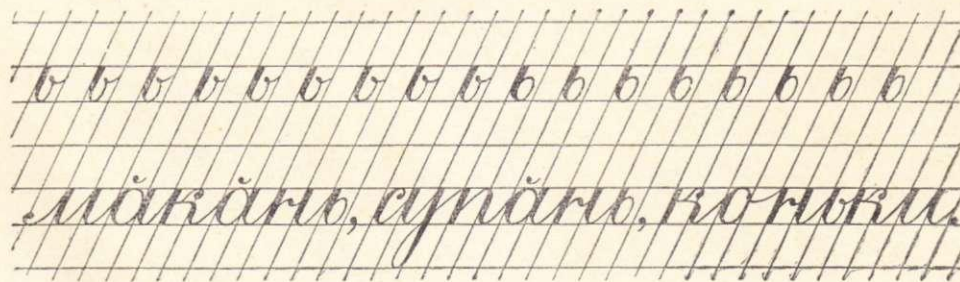 ь ь ь ь ь ь ь ь ь ь ь ь ь ь ь ь ь
мӑкӑнь, супӑнь, коньки.